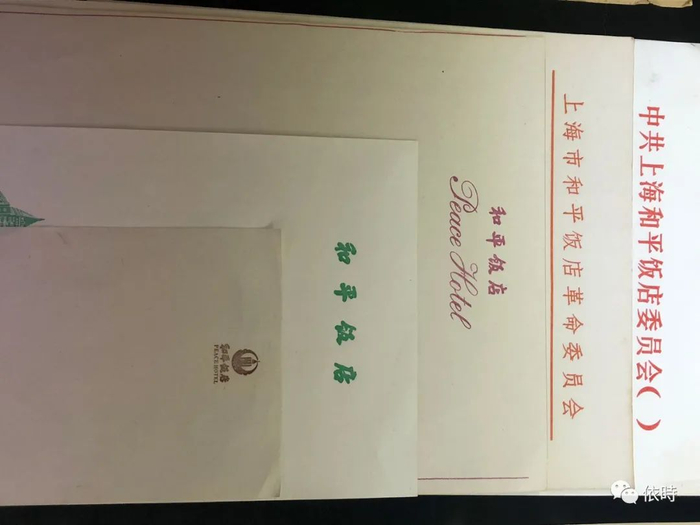 中共上海和平饭店委员会( )
上海市和平饭店革命委员会
和平饭店
Peace Hotel
和平饭店
和平饭店
PEACE HOTEL
依時